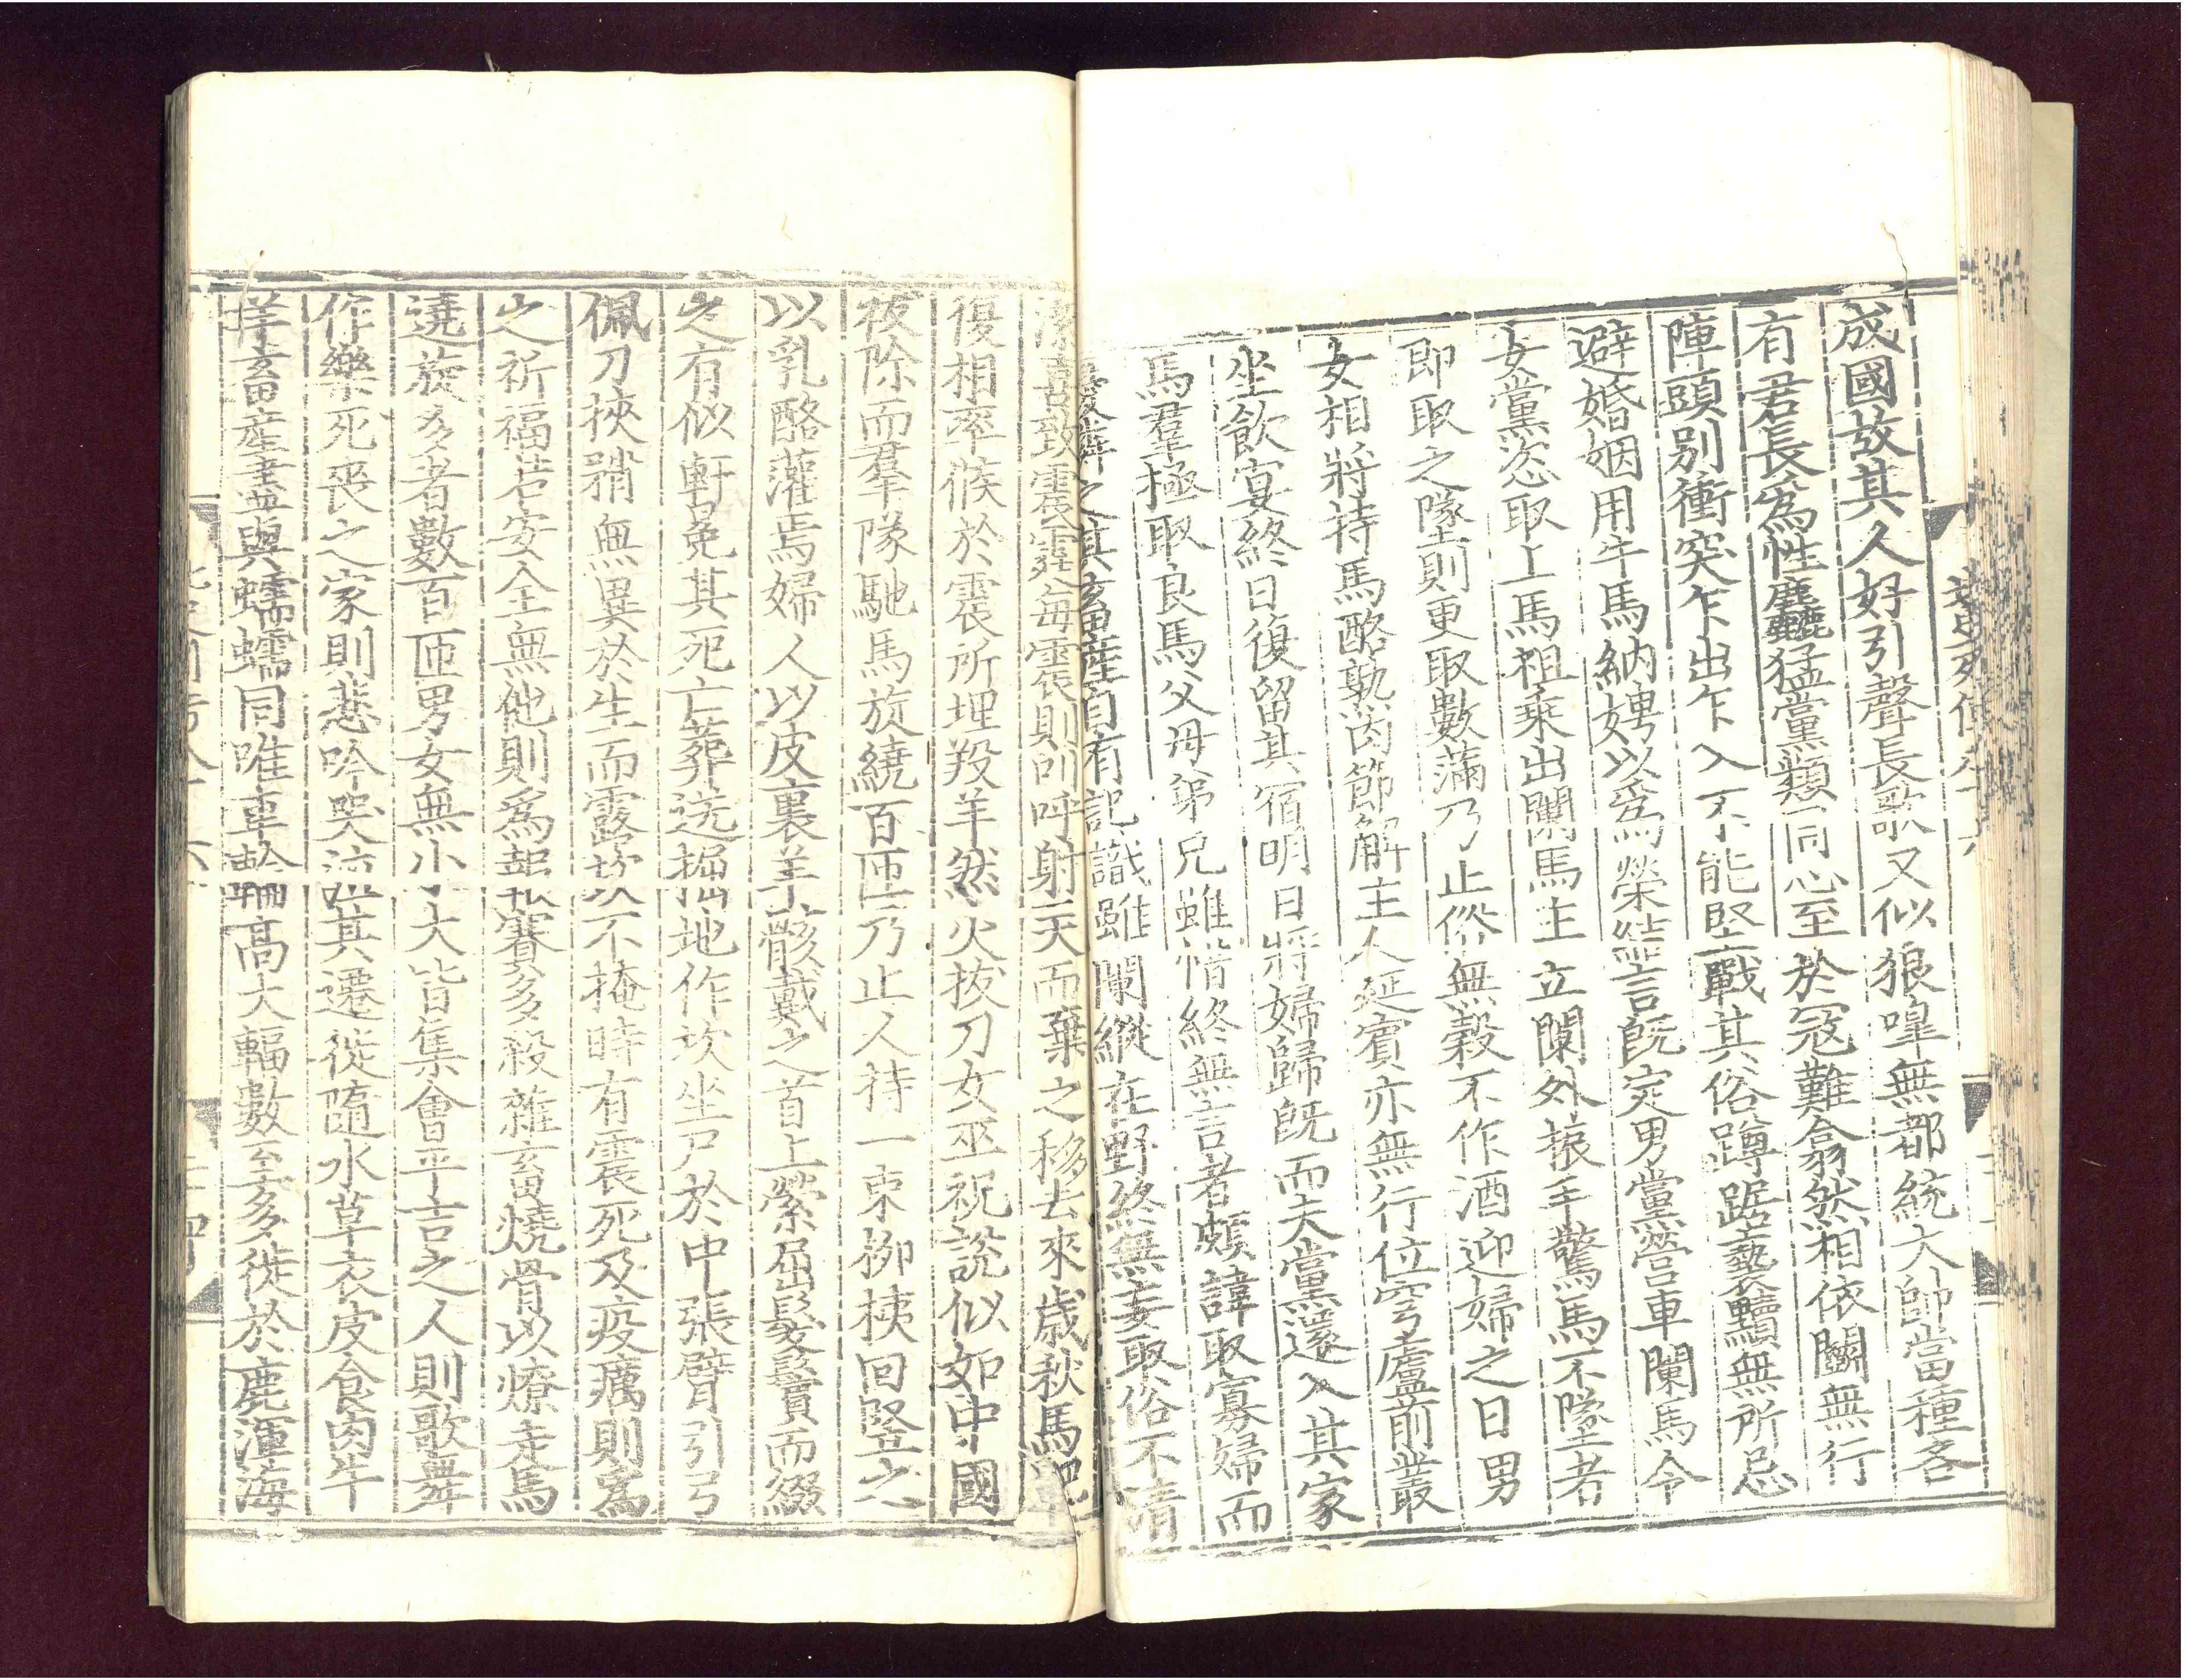 成國故其人好引聲長歌又似狼嘷無都統大帥當種各
有君長爲性麤猛黨類同心至於寇難翕然相依鬬無行
陣頭别衝突乍出乍入不能堅戰其俗蹲踞䙝黷無所忌
避婚姻用牛馬納娉以爲榮結言旣定男黨營車闌馬令
女黨恣取上馬袒乗出闌馬主立闌外振手驚馬不墜者
即取之墜則更取數滿乃止俗無穀不作酒迎婦之日男
女相將持馬酪熟肉節解主人延賓亦無行位穹廬前叢
坐飲宴終日復留其宿明日將婦歸旣而夫黨還入其家
馬羣極取良馬父母弟兄雖惜終無言者頗諱取寡婦而
憂憐之其畜産自有記識雖闌縱在野終無妄取俗不清
潔喜致震霆每震則叫呼射天而棄之移去來歲秋馬肥
復相率候於震所埋羖羊然火拔刀女巫祝說似如中國
祓除而羣隊馳馬旋繞百匝乃止人持一束柳桋回竪之
以乳酪灌焉婦人以皮裹羊骸戴之首上縈屈髮鬢而綴
之有似軒冕其死亡葬送掘地作坎坐尸於中張臂引弓
佩刀挾矟無異於生而露坎不掩時有震死及疫癘則爲
之祈福若安全無他則爲報賽多殺雜畜燒骨以燎走馬
遶旋多者數百匝男女無小大皆集會平吉之人則歌舞
作樂死喪之家則悲吟哭泣其遷徙隨水草衣皮食肉牛
羊畜産盡與蠕蠕同唯車輪高大輻數至多徙於鹿渾海